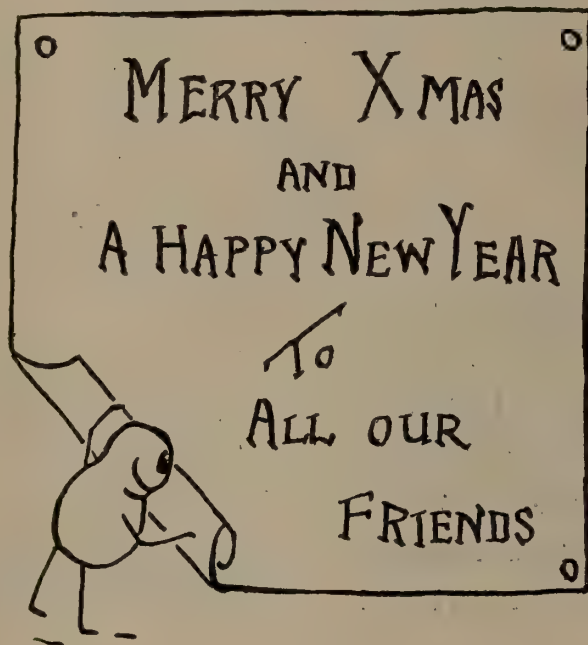 MERRY XMAS
AND
A HAPPY NEW YEAR
To
ALL OUR
FRIENDS